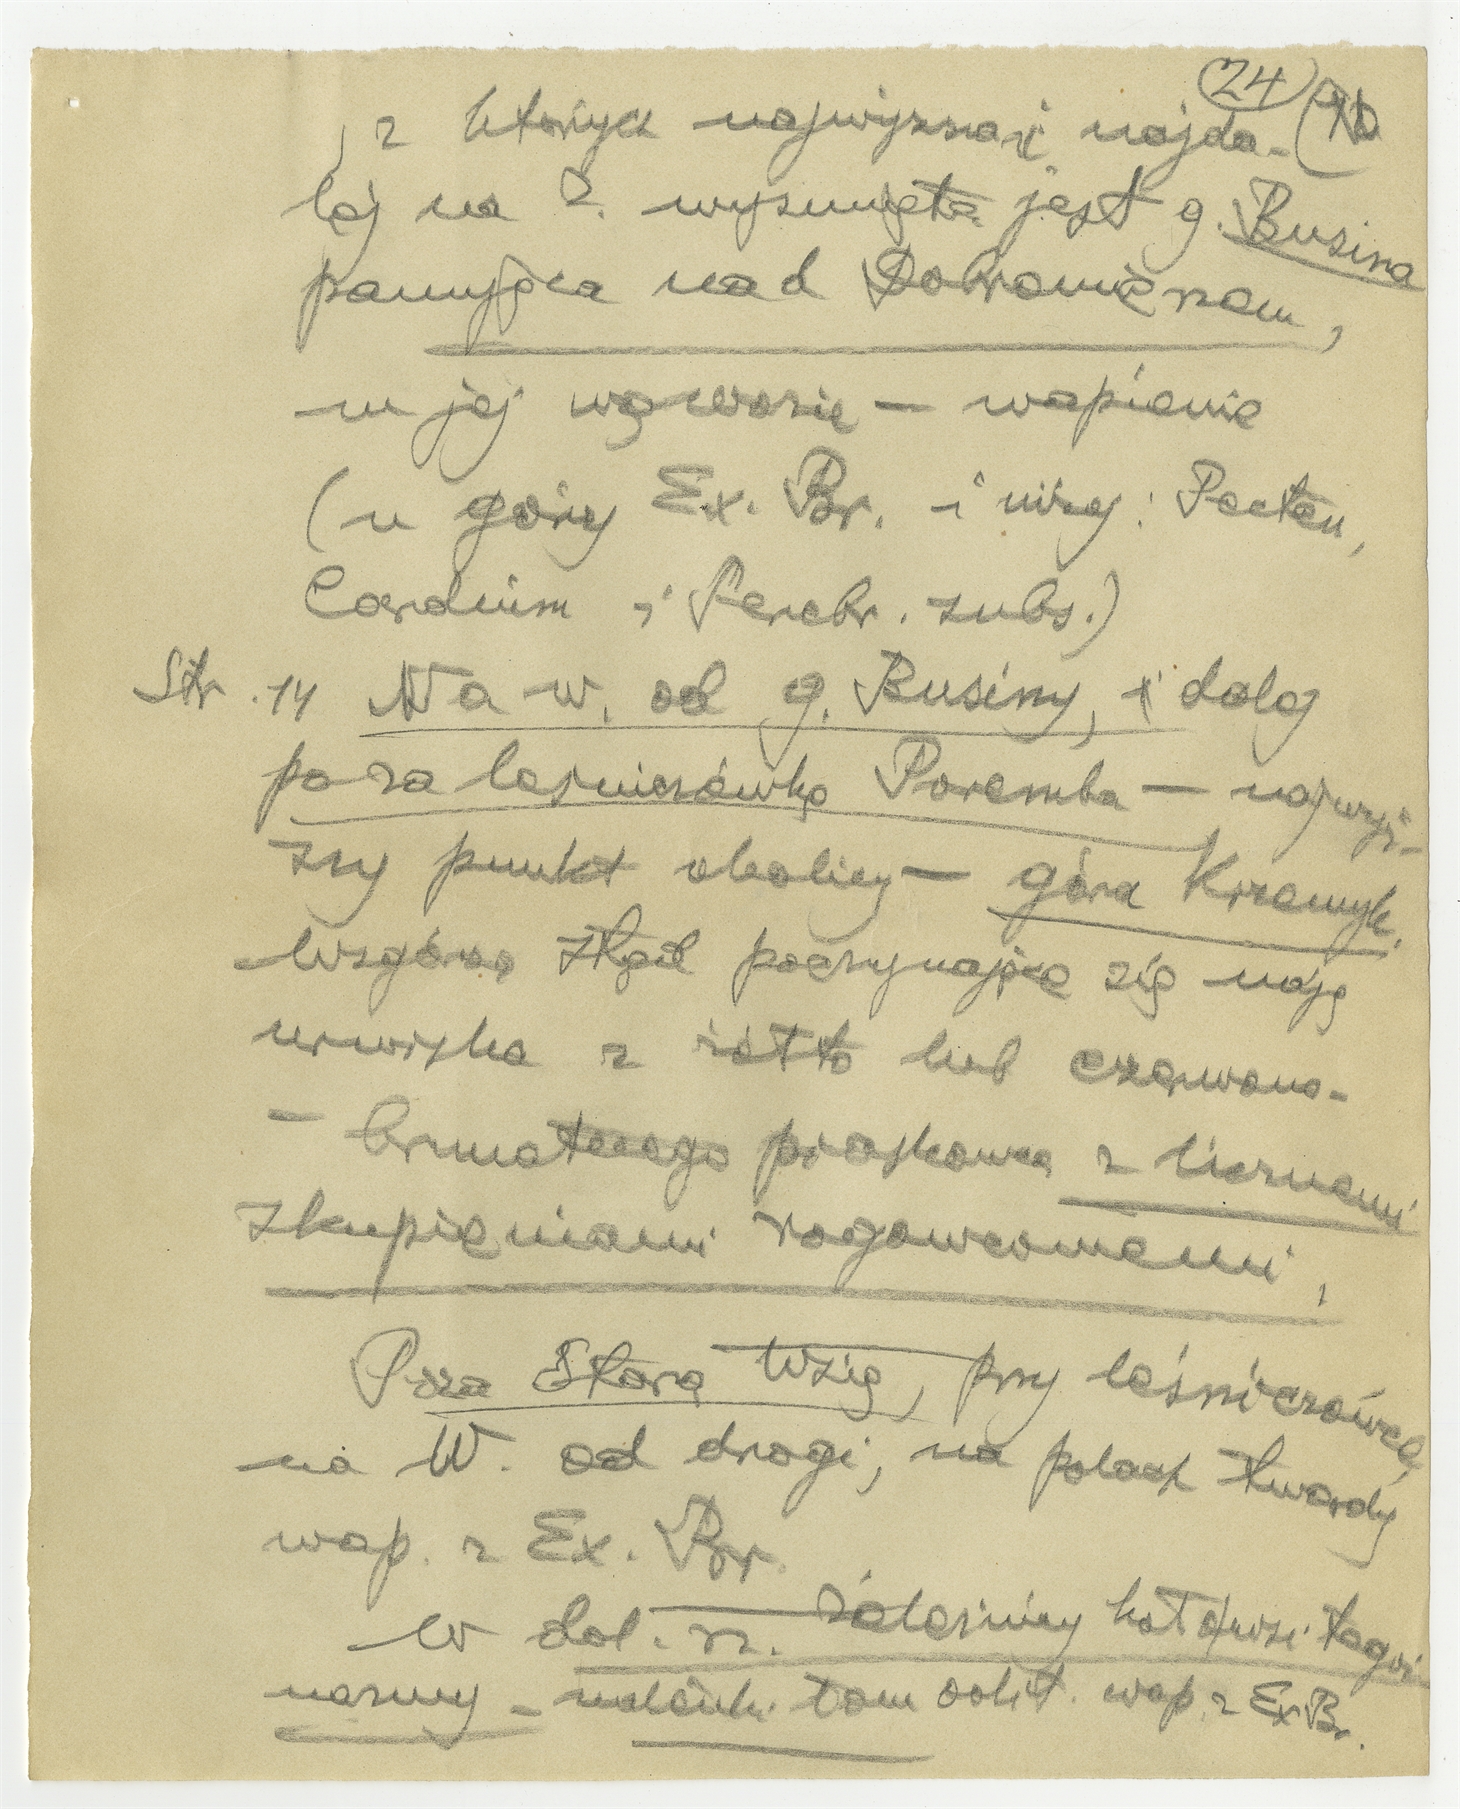 24
, z których najwyższa i najda-
lej na Z. wysunięta jest g. Busina
panująca nad Dobromierzem,
w jej wąwozie — wapienie
(u góry Ex. Br. i niżej: Pecten,
Cardium i Terebr. subs.)
Str. 14 Na w. od g. Businy, i dalej
poza leśniczówką Poremba — najwyż-
szy punkt okolicy — góra Krzemyk.
Wzgórza stąd poczynające się mają
urwiska z żółto lub czerwono-
- brunatnego piaskowca z licznemi
skupieniami rogowcowemi.
Poza Starą Wsią, przy leśniczówce
na W. od drogi, na polach twardy
wap. z Ex. Br.
W dol. rz. koł wsi tegoż
nazwy - oolit. wap. z Ex. Br.